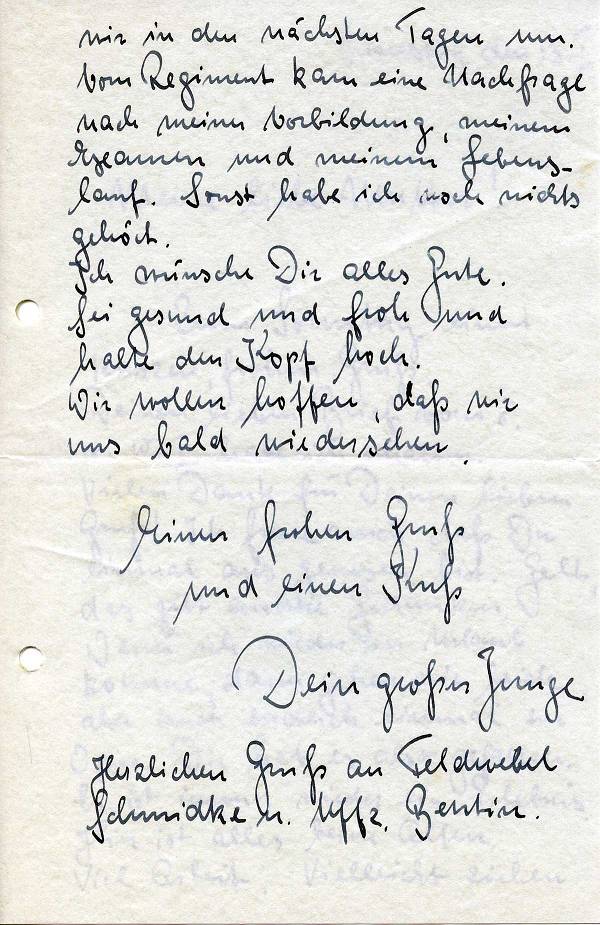 wir in den nächsten Tagen um.
Vom Regiment kam eine Nachfrage
nach meiner Vorbildung, meinem
Examen und meinem Lebens-
lauf. Sonst habe ich noch nichts
gehört.
Ich wünsche Dir alles Gute.
Sei gesund und froh und
halte den Kopf hoch.
Wir wollen hoffen, daß wir
uns bald wiedersehen.
Einen frohen Gruß
und einen Kuß
Dein großer Junge
Herzlichen Gruß an Feldwebel
Schmidke u. Uffz. Bentin.